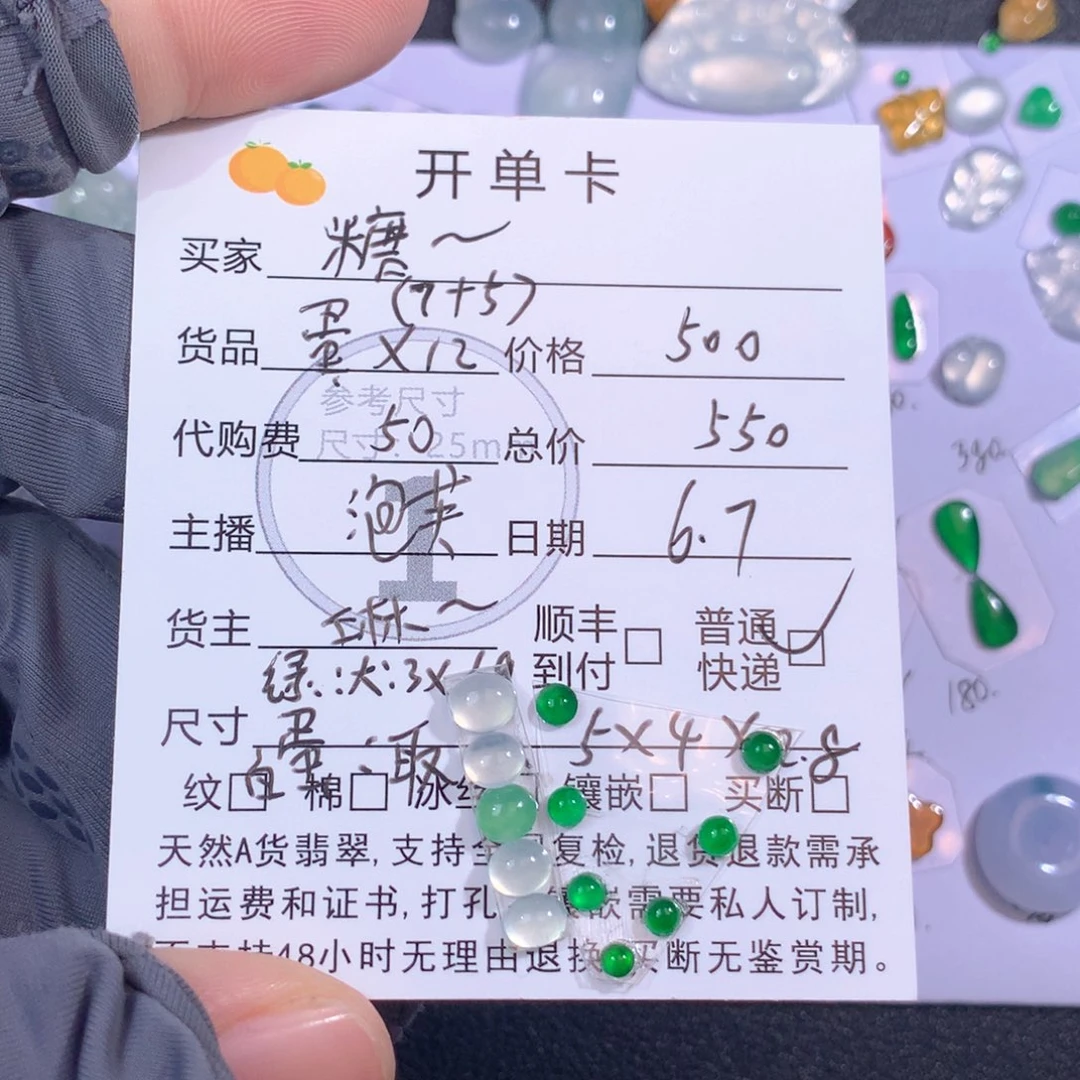 开单卡
买家 糖~
(7+5)
货品 蛋X12 价格 500
参考尺寸
代购费 50 总价 550
尺寸: 25mm
主播 泡芙 日期 6.7
1
货主 ~ 顺丰到付 □ 普通快递 □
绿:大:3X
尺寸 白蛋:取 5X4X2.8
纹□ 棉□ 冰 镶嵌□ 买断□
天然A货翡翠,支持全 复检,退货退款需承
担运费和证书,打孔 镶嵌需要私人订制,
不支持48小时无理由退换 买断无鉴赏期。
380.
180.